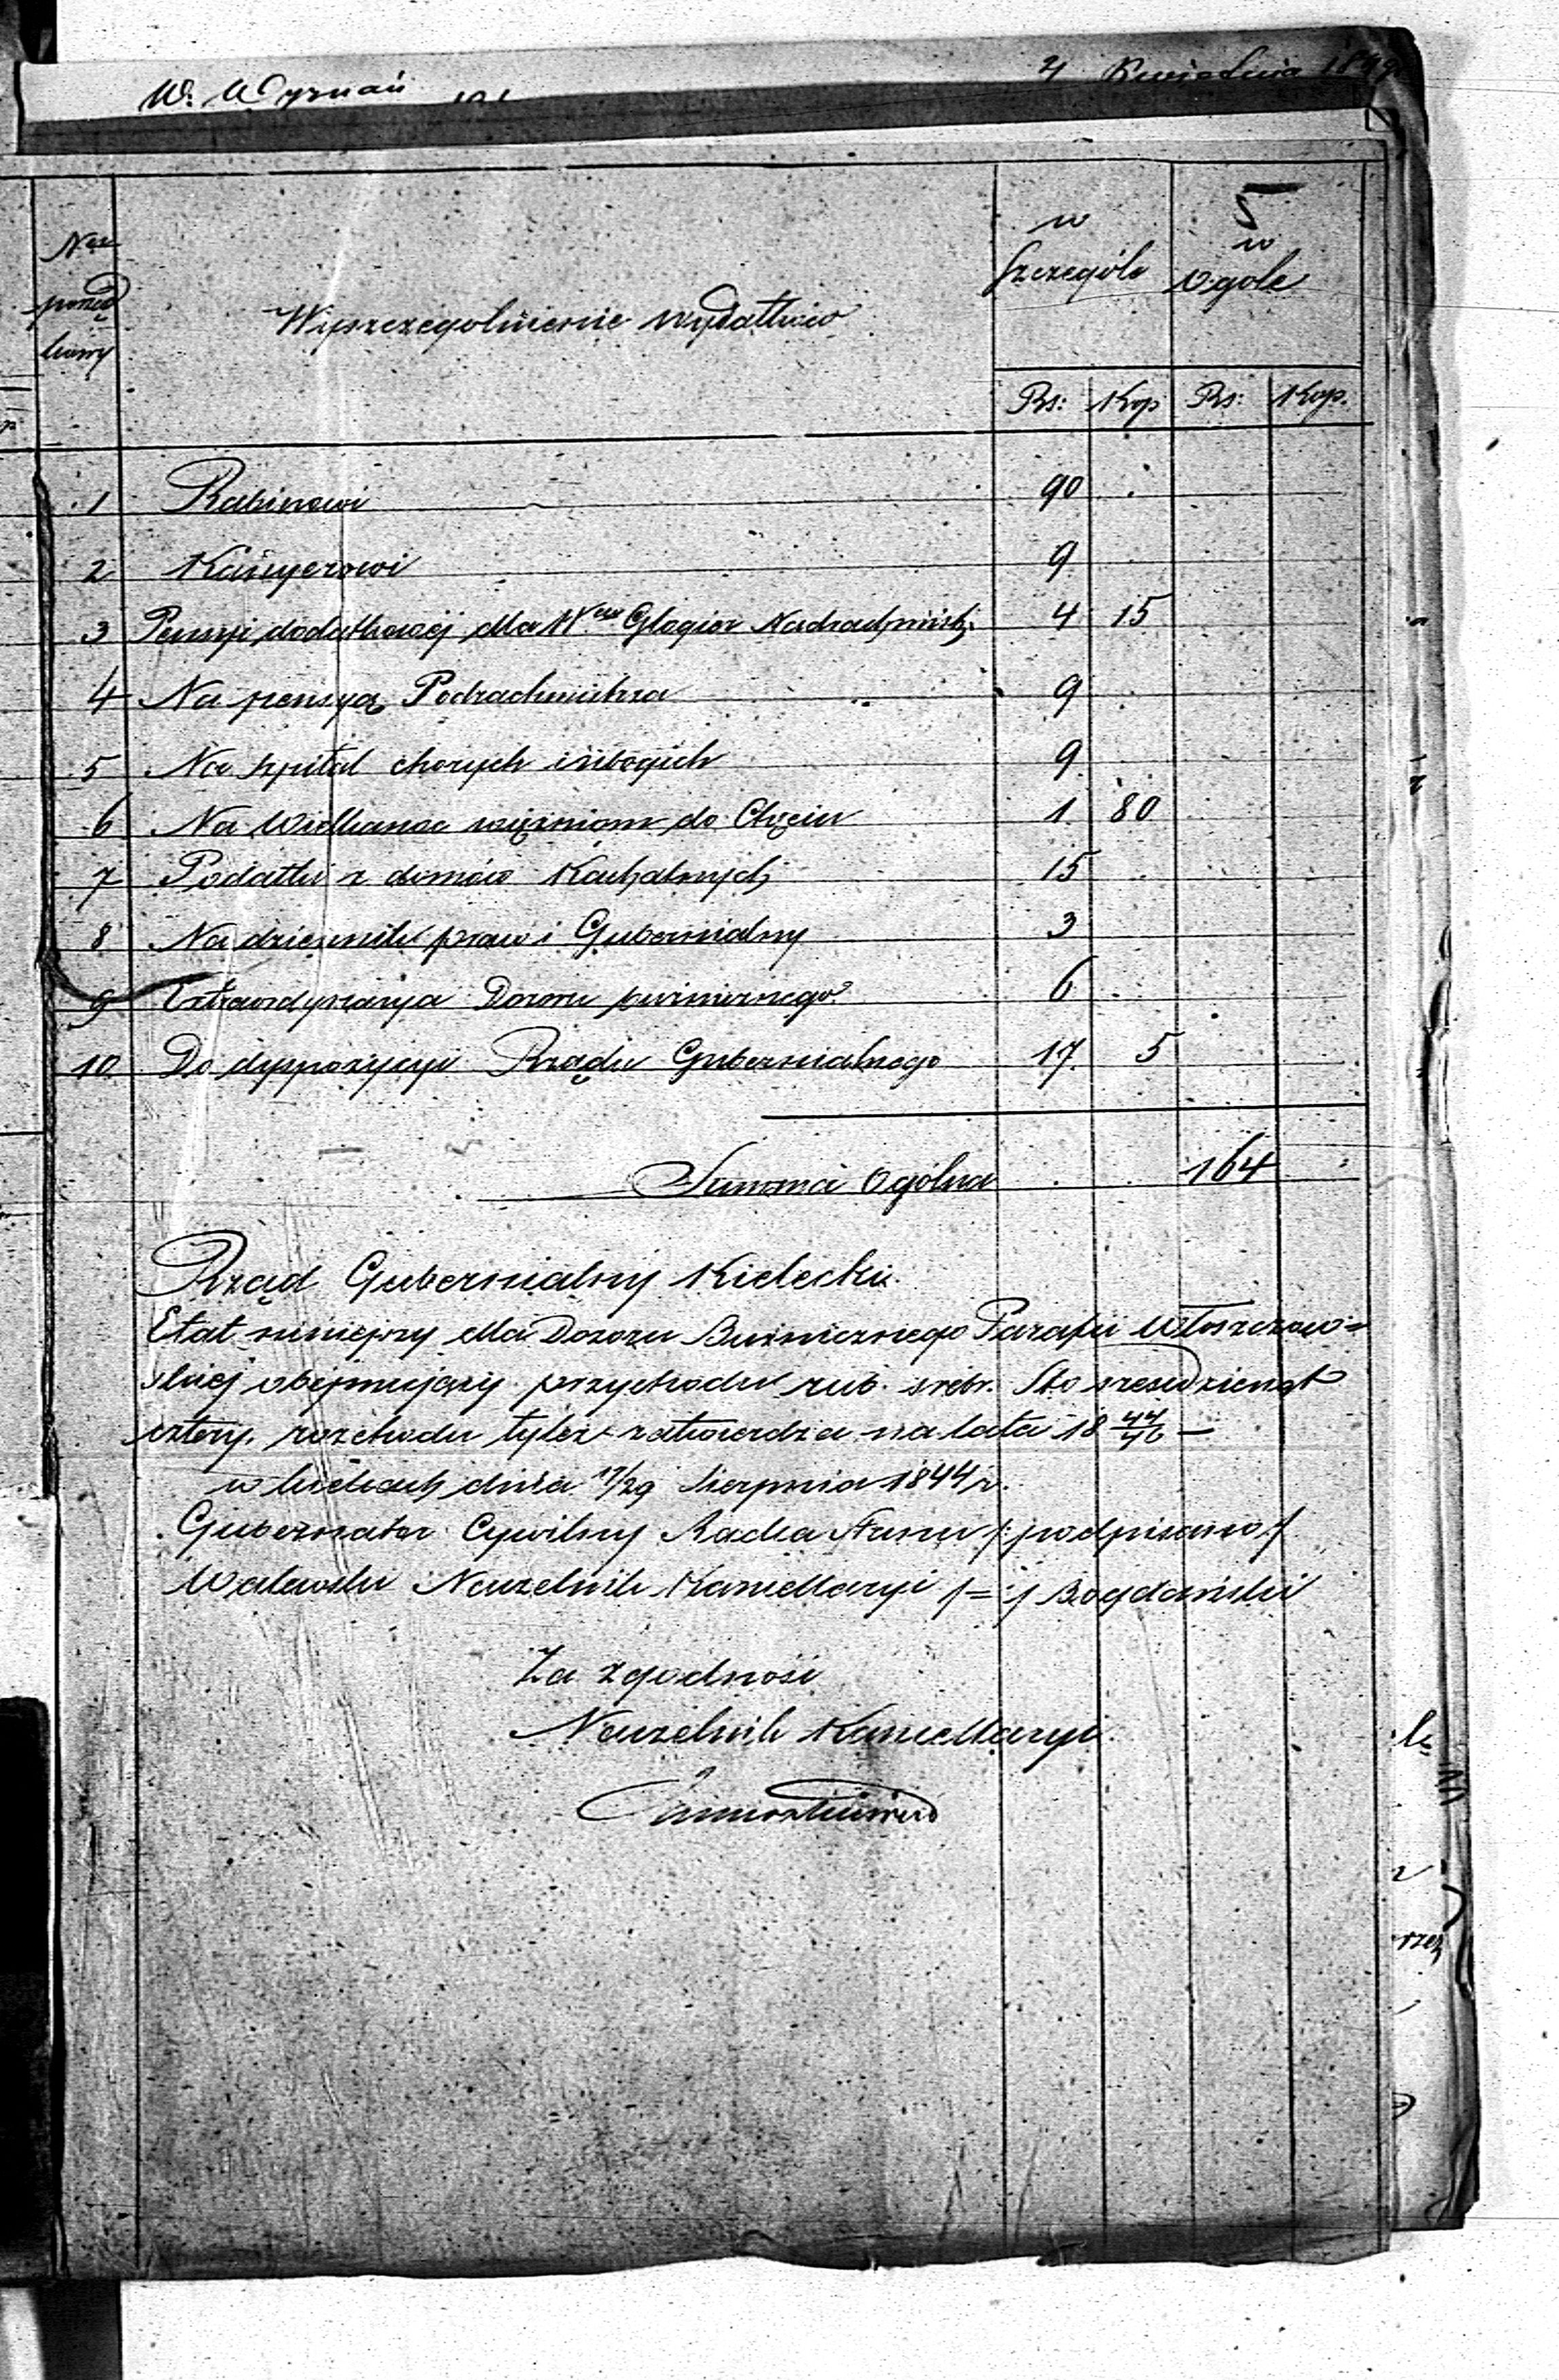 W. Wyznań
4 Kwietnia 184
5
Ner
porząd
kowy
Wyszczególnienie wydatków
w
szczególe
w
ogóle
Rs: Kop Rs: Kop.
1 Rabinowi 90 .
2 Kassyerowi 9 .
3 Pensyi dodatkowéj dla Glogier 4 15
4 Na pensyą Podrachmistrza 9 .
5 Na szpital chorych i ubogich 9
6 Na Wielkanoc więźniom do Chęcin 1 80
7 Podatki z domów Kachalnych 15
8 Na dziennik praw i Gubernialny 3
9 Extraordynarya Dozoru 6 .
10 Do dyspozycyi Rządu Gubernialnego 17. 5
Summa Ogólna . . 164
Rząd Gubernialny Kielecki.
Etat niniejszy dla Dozoru Bużniczego Parafii Włoszczow=
skiéj obejmujący przychodu rub. srebr. Sto sześćdziesiąt
cztery, rozchodu tyleż zatwierdza na lata 18 44/46 –
w Kielcach dnia 17/29 Sierpnia 1844 r.
Gubernator Cywilny Radca Stanu /: podpisano :/
Walewski Naczelnik Kancellaryi /=:/ Bogdański
Za zgodność
Naczelnik Kancellaryi